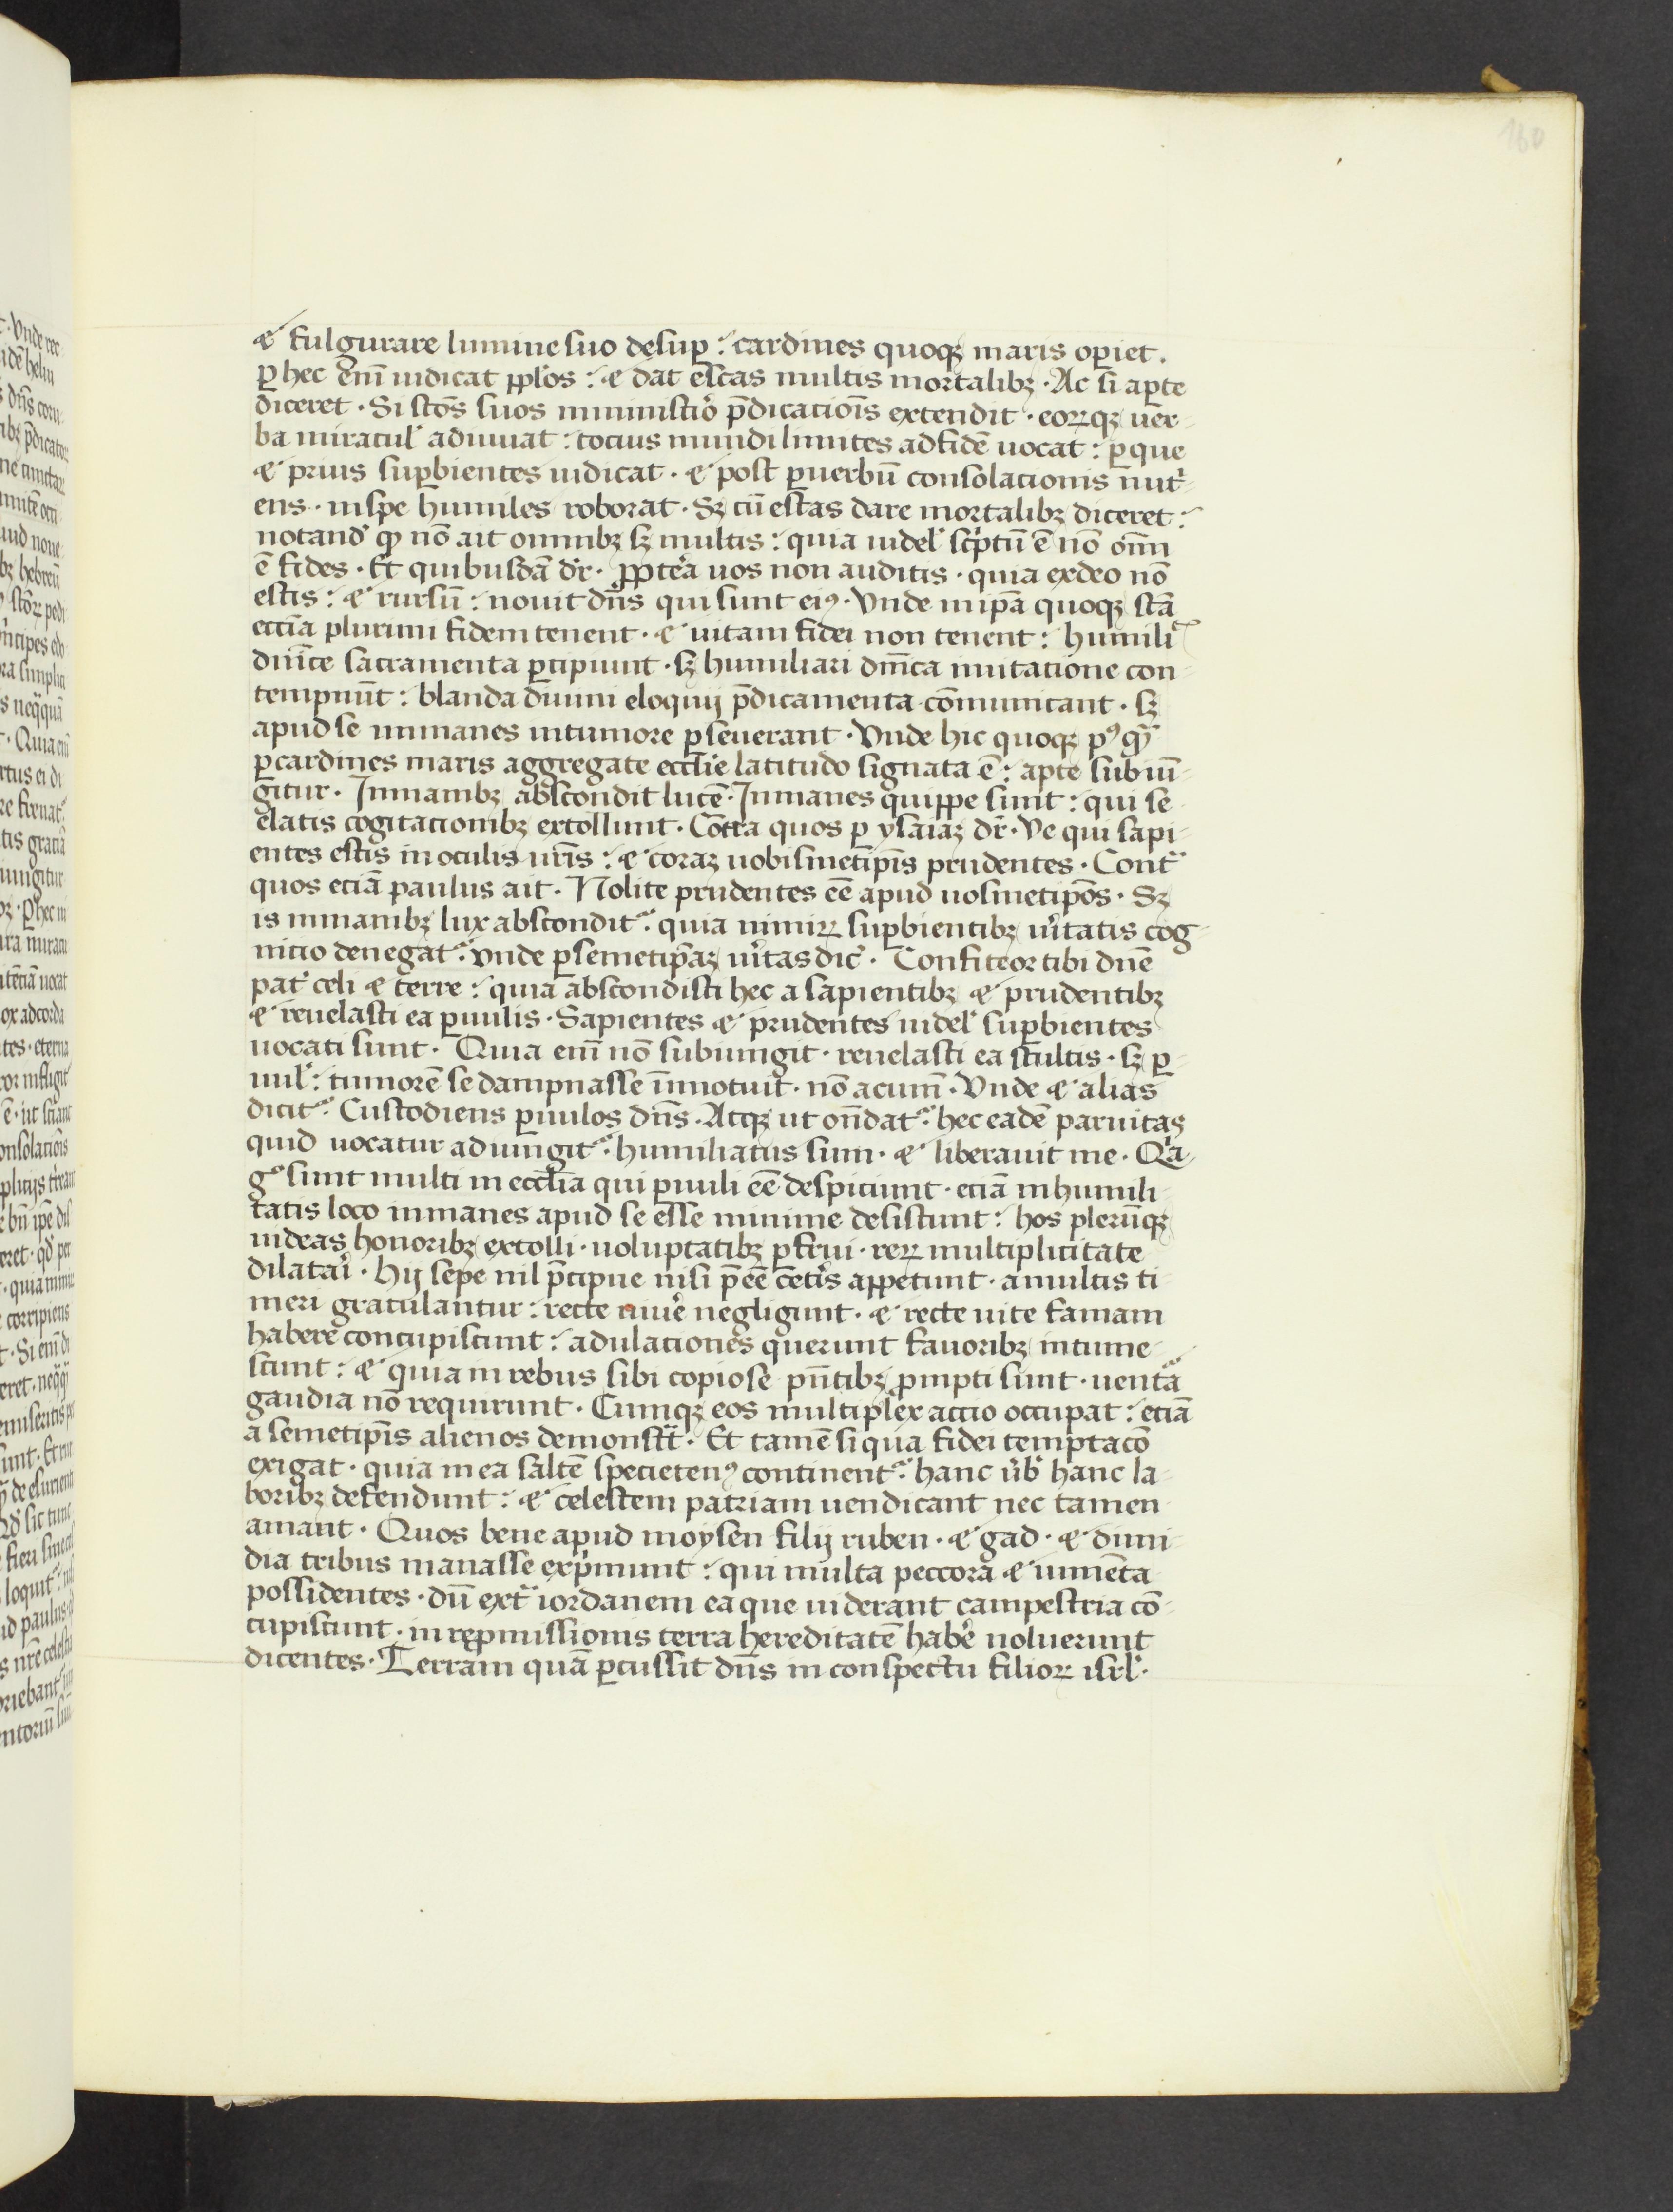 160
⁊ fulgurare lumine suo desup̱ : cardines quoqꝫ maris op̱iet .
ꝑ hec em̄ iudicat ppl̓os : ⁊ dat escas multis mortalibꝫ · Ac si aꝑte
diceret · Si sc̄os suos ministio̓ p̄dicacio̅is extendit · eoꝝqꝫ uer-
ba miracul̓ adiuuat : tocius mundi limites ad fidē uocat : ꝑ que
⁊ prius suꝑbientes iudicat · ⁊ post ꝑ uerbū consolacionis nut̓-
ens · in spe humiles roborat · Sꝫ cū escas dare mortalibꝫ diceret :
notand̓ ꝙ nō ait omnibꝫ sꝫ multis : quia uidel̓ sc̓ptū ē nō om̄i
ē fides · Et quibusdā dr̄ · ꝓpter̓a uos non auditis · quia ex deo nō
estis : ⁊ rursū : nouit dn̄s qui sunt eiꝰ · Vnde in ip̄a quoqꝫ sc̄a
ecc̄ia plurimi fidem tenent · ⁊ uitam fidei non tenent : humilit̓
dn̄ice sacramenta ꝑcipiunt · sꝫ humiliari dn̄ica imitacione con-
tempnūt : blanda diuini eloquij p̄dicamenta cōmunicant · sꝫ
apud se inmanes in tumore ꝑseuerant · Vnde hic quoqꝫ pꝰꝙ̄
ꝑ cardines maris aggregate eccl̄ie latitudo signata ē : apte subiū-
gitur · Inmanibꝫ abscondit lucē · Inmanes quippe sunt : qui se
elatis cogitacionibꝫ extollunt · Cōtra quos ꝑ ysaiaꝫ dr̄ · Ve qui sapi-
entes estis in oculis ur̄is : ⁊ coraꝫ uobismetip̄is prudentes · Contᵃ
quos eciā paulus ait · Nolite prudentes eē apud uosmetip̄os · Sꝫ
is inmanibꝫ lux abscondit̓ · quia nimiꝝ suꝑbientibꝫ u̓itatis cog-
nicio denegat̓ · Vnde ꝑ semetip̄aꝫ u̓itas dic̓ · Confiteor tibi dn̄e
pat̓ celi ⁊ terre : quia abscondisti hec a sapientibꝫ ⁊ prudentibꝫ
⁊ reuelasti ea ꝑuulis · Sapientes ⁊ prudentes uidel̓ suꝑbientes
uocati sunt · Quia em̄ nō subiungit · reuelasti ea stultis · sꝫ ꝑ-
uul̓ : tumorē se dampnasse īnotuit · nō acum̄ · Vnde ⁊ alias
dicit̓ · Custodiens ꝑuulos dn̄s · Atqꝫ ut on̄dat̓ · hec eadē paruitas
quid uocatur adiungit̓ · humiliatus sum · ⁊ liberauit me · Q̓a
gᵒ sunt multi in eccl̄ia qui ꝑuuli eē despiciunt · eciā in humili-
tatis loco inmanes apud se esse minime desistunt : hos plerūqꝫ
uideas honoribꝫ extolli · uoluptatibꝫ ꝑfrui · reꝝ multiplicitate
dilatar̓i · Hij sepe nil p̄cipue nisi p̄eē cet̓is appetunt · a multis ti-
meri gratulantur : recte uiue̓ negligunt · ⁊ recte uite famam
habere concupiscunt : adulationes querunt fauoribꝫ intume-
scunt : ⁊ quia in rebus sibi copiose pn̄tibꝫ ꝓmpti sunt · uentᵃ
gaudia nō requirunt · Cumqꝫ eos multiplex accio occupat : eciā
a semetip̄is alienos demonstᵃt · Et tamē si qua fidei temptacō
exigat · quia in ea saltē specietenꝰ continent̓ · hanc u̓b̓ hanc la-
boribꝫ defendunt : ⁊ celestem patriam uendicant nec tamen
amant · Quos bene apud moysen filij ruben · ⁊ gad · ⁊ dimi-
dia tribus manasse exp̓munt : qui multa peccora ⁊ iumēta
possidentes · dū extᵃ iordanem ea que uiderant campestria cō-
cupiscunt · in reꝓmissionis terra hereditatē habe̓ noluerunt
dicentes · Terram quā ꝑcussit dn̄s in conspectu filioꝝ isrl̓ ·